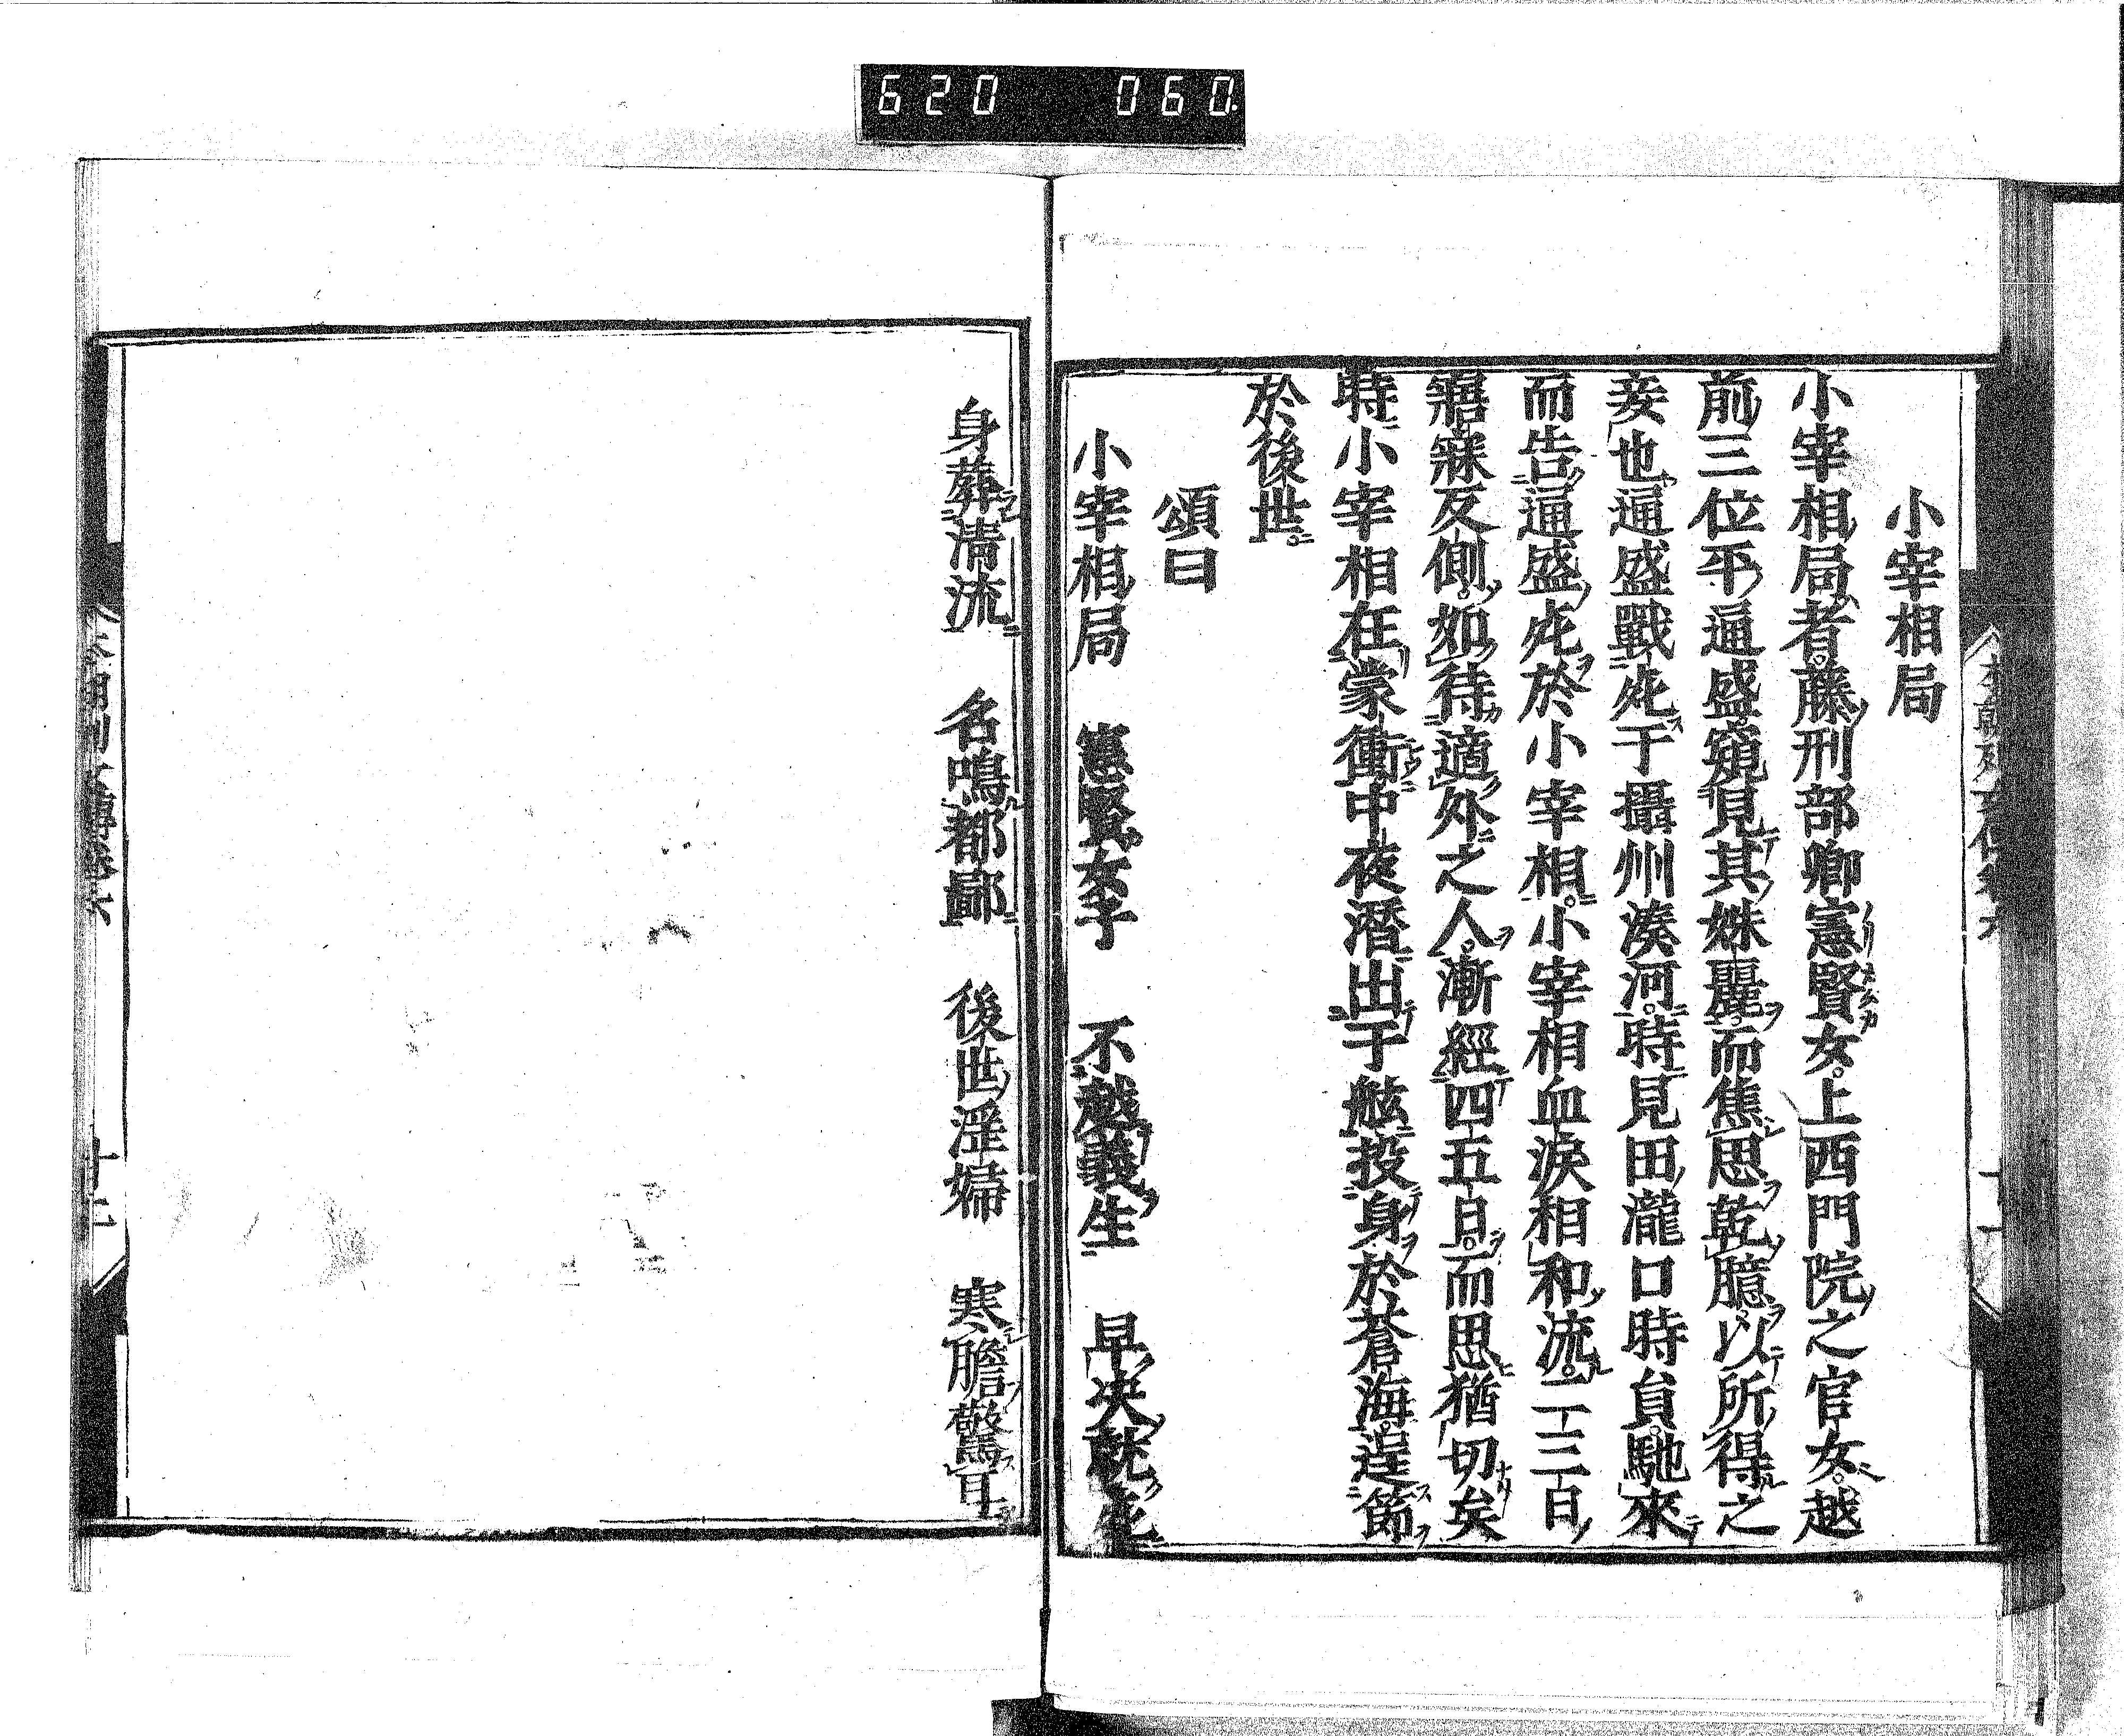 620 060.
小宰相局
小宰相局者。藤刑部卿憲賢女。上西門院之官女。越
前三位平通盛。窺見其姝麗。而焦思乾臆。以所得之
妾也。通盛戰死于攝州湊河。時見田瀧口時員。馳來
而告通盛死於小宰相。小宰相血淚相和流。二三日
寤寐反側。如待適外之人。漸經四五日。而思猶切矣
時小宰相在蒙衝中。夜潛出于舷投身於蒼海。逞節
於後世。
頌曰
小宰相局 憲賢女子 不愆義生 早决就死
身葬清流 名鳴都鄙 後世淫婦 寒膽驚耳